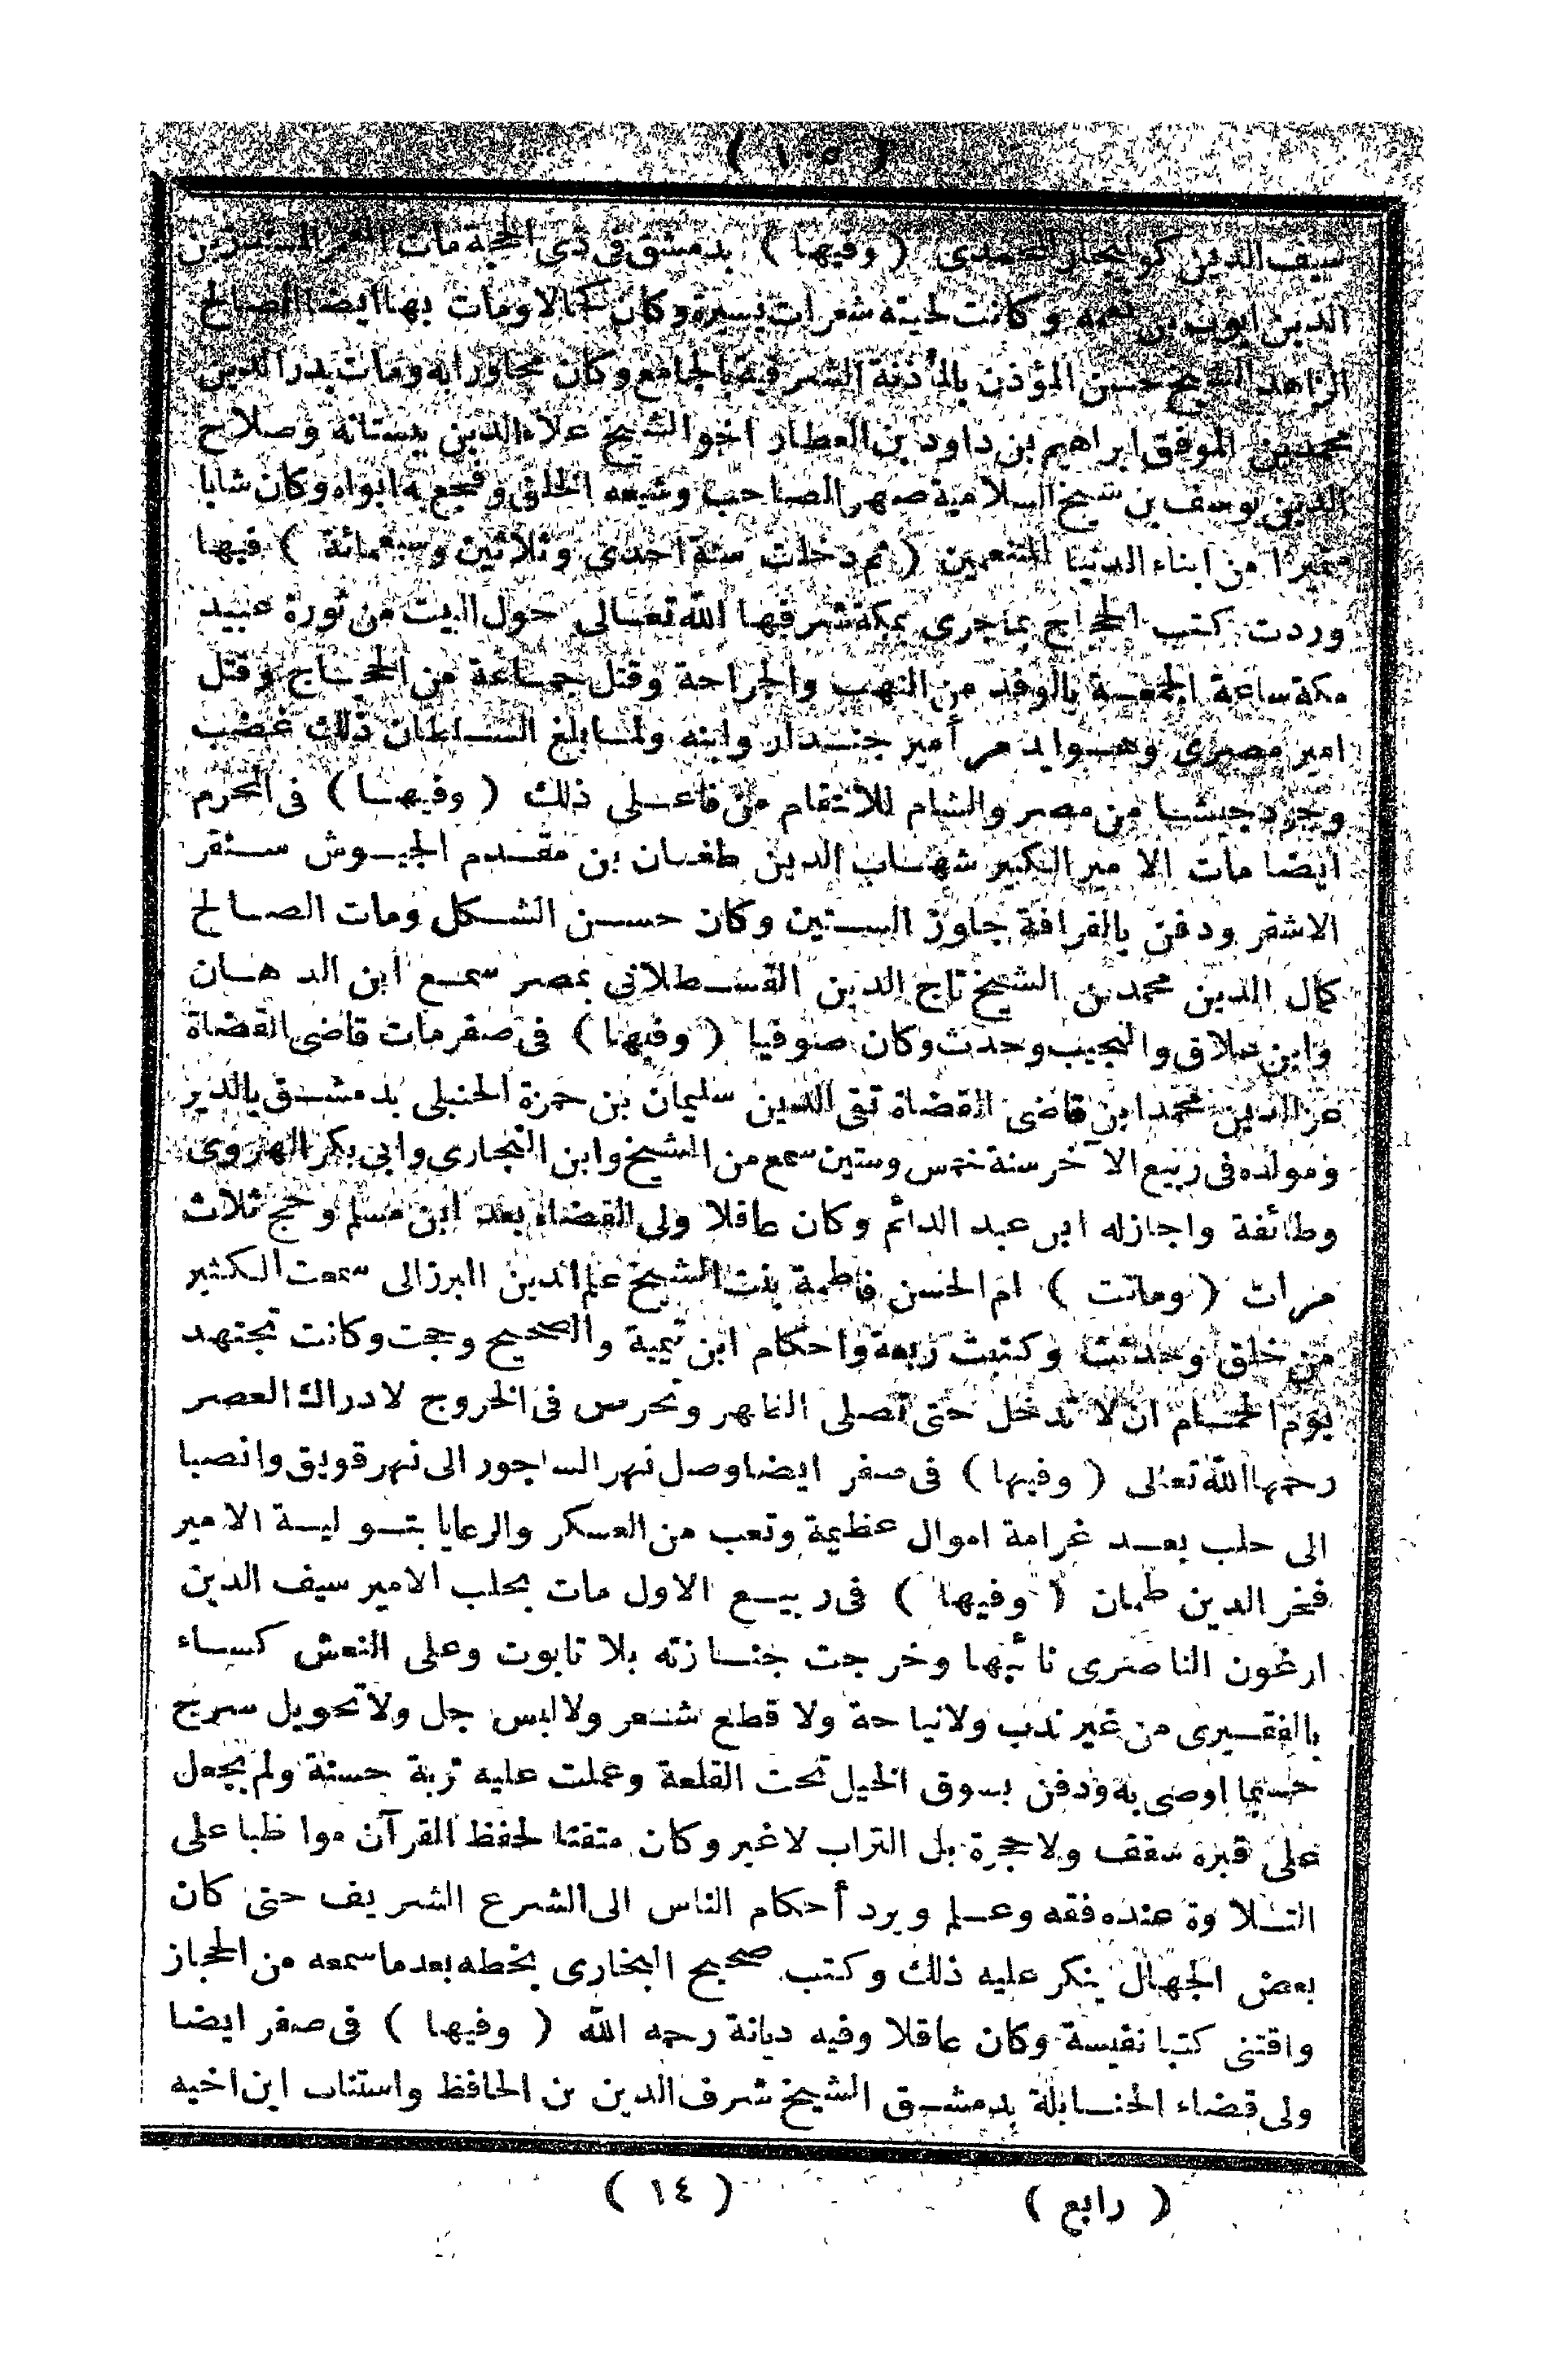 ( ١٠٥ )
سيف الدين كوايجار المحمدى ( وفيها ) بدمشق فى ذى الحجة مات المعمر المسند زين
الدين ايوب بن نعمه وكانت لحيته شعرات يسيرة وكان كحالا ومات بها ايضا الصالح
الزاهد الشيخ حسن المؤذن بالمأذنة الشرقية بالجامع وكان مجاورا به ومات بدر الدين
محمد بن الموفق ابراهيم بن داود بن العطار اخو الشيخ علاء الدين ببستانه وصلاح
الدين يوسف بن شيخ السلامية صهر الصاحب وشيعه الخلق وفجع به ابواه وكان شابا
متميزا من ابناء الدنيا المتنعمين ( ثم دخلت سنة احدى وثلاثين وسبعمائة ) فيها
وردت كتب الحجاج بما جرى بمكة شرفها الله تعالى حول البيت من ثورة عبيد
مكة ساعة الجمعة بالوفد من النهب والجراحة وقتل جماعة من الحجاج وقتل
امير مصرى وهو ايدمر أمير جندار وابنه ولما بلغ السلطان ذلك غضب
وجرد جيشا من مصر والشام للانتقام من فاعلى ذلك ( وفيها ) فى المحرم
ايضا مات الامير الكبير شهاب الدين طغان بن مقدم الجيوش سنقر
الاشقر ودفن بالقرافة جاوز الستين وكان حسن الشكل ومات الصالح
كمال الدين محمد بن الشيخ تاج الدين القسطلانى بمصر سمع ابن الدهان
وابن علاق والنجيب وحدث وكان صوفيا ( وفيها ) فى صفر مات قاضى القضاة
عز الدين محمد ابن قاضى القضاة تقى الدين سليمان بن حمزة الحنبلى بدمشق بالدير
ومولده فى ربيع الآخر سنة خمس وستين سمع من الشيخ وابن النجارى وابى بكر الهروى
وطائفة واجاز له ابن عبد الدائم وكان عاقلا ولى القضاء بعد ابن مسلم وحج ثلاث
مرات ( وماتت ) ام الحسن فاطمة بنت الشيخ علم الدين البرزالى سمعت الكثير
من خلق وحدثت وكتبت ربعة واحكام ابن تيمية والصحيح وحجت وكانت تجتهد
يوم الحمام ان لا تدخل حتى تصلى الظهر وتحرص فى الخروج لادراك العصر
رحمها الله تعالى ( وفيها ) فى صفر ايضا وصل نهر الساجور الى نهر قويق وانصبا
الى حلب بعد غرامة اموال عظيمة وتعب من العسكر والرعايا بتولية الامير
فخر الدين طمان ( وفيها ) فى ربيع الاول مات بحلب الامير سيف الدين
ارغون الناصرى نائبها وخرجت جنازته بلا تابوت وعلى النعش كساء
بالفقيرى من غير ندب ولا نياحة ولا قطع شعر ولا لبس جل ولا تحويل سرج
حسبما اوصى به ودفن بسوق الخيل تحت القلعة وعملت عليه تربة حسنة ولم يجعل
على قبره سقف ولا حجرة بل التراب لا غير وكان متقنا لحفظ القرآن مواظبا على
التلاوة عنده فقه وعلم ويرد أحكام الناس الى الشرع الشريف حتى كان
بعض الجهال ينكر عليه ذلك وكتب صحيح البخارى بخطه بعد ما سمعه من الحجاز
واقتنى كتبا نفيسة وكان عاقلا وفيه ديانة رحمه الله ( وفيها ) فى صفر ايضا
ولى قضاء الحنابلة بدمشق الشيخ شرف الدين بن الحافظ واستناب ابن اخيه
( رابع ) ( ١٤ )